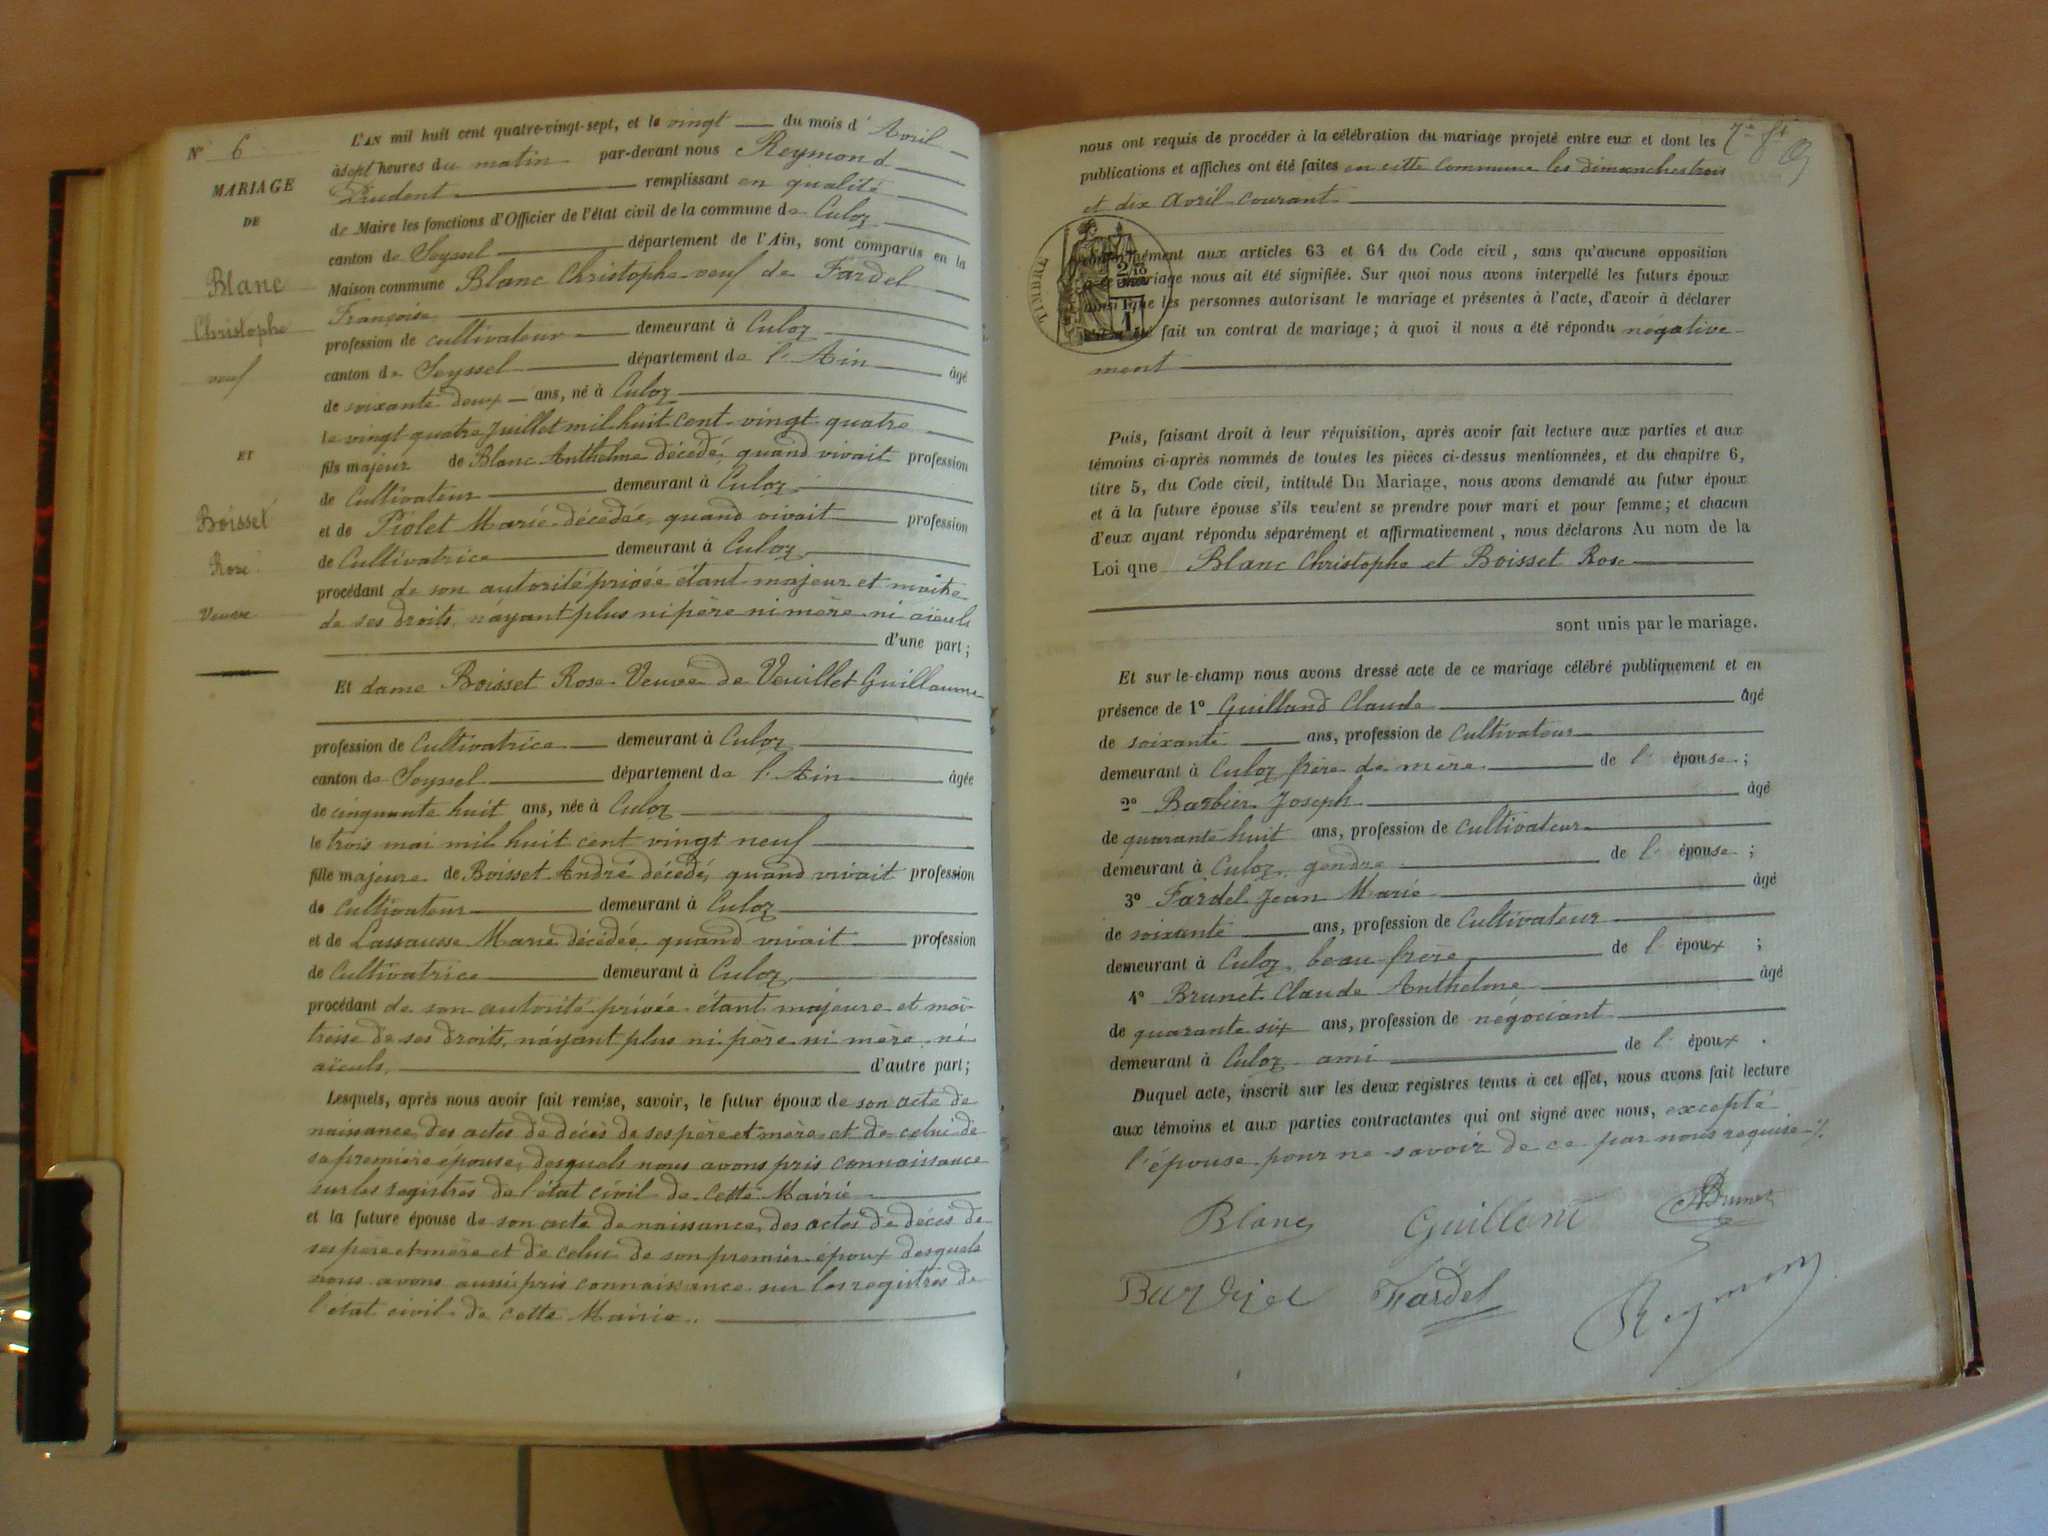 N° 6
MARIAGE
DE
Blanc
Christophe
veuf
ET
Boisset
Rose
Veuve
L'AN mil huit cent quatre-vingt-sept, et le vingt du mois d'Avril
à sept heures du matin par-devant nous Reymond
Prudent remplissant en qualité
de Maire les fonctions d'Officier de l'état civil de la commune de Culoz
canton de Seyssel département de l'Ain, sont comparus en la
Maison commune Blanc Christophe veuf de Fardel
Françoise
profession de cultivateur demeurant à Culoz
canton de Seyssel département de l'Ain âgé
de soixante deux ans, né à Culoz
le vingt quatre Juillet mil huit cent vingt quatre
fils majeur de Blanc Anthelme décédé, quand vivait profession
de Cultivateur demeurant à Culoz
et de Piolet Marie décédée, quand vivait profession
de Cultivatrice demeurant à Culoz
procédant de son autorité privée étant majeur et maitre
de ses droits, n'ayant plus ni père ni mère ni aïeuls
d'une part;
Et dame Boisset Rose Veuve de Veuillet Guillaume
profession de Cultivatrice demeurant à Culoz
canton de Seyssel département de l'Ain âgée
de cinquante huit ans, née à Culoz
le trois mai mil huit cent vingt neuf
fille majeure de Boisset André décédé, quand vivait profession
de Cultivateur demeurant à Culoz
et de Lassausse Marie décédée, quand vivait profession
de Cultivatrice demeurant à Culoz
procédant de son autorité privée étant majeure et maî-
tresse de ses droits, n'ayant plus ni père ni mère ni
aïeuls, d'autre part;
Lesquels, après nous avoir fait remise, savoir, le futur époux de son acte de
naissance, des actes de décès de ses père et mère et de celui de
sa première épouse, desquels nous avons pris connaissance
sur les registres de l'état civil de cette Mairie
et la future épouse de son acte de naissance, des actes de décès de
ses père et mère et de celui de son premier époux desquels
nous avons aussi pris connaissance sur les registres de
l'état civil de cette Mairie.
7e ft
nous ont requis de procéder à la célébration du mariage projeté entre eux et dont les
publications et affiches ont été faites en cette commune les dimanches trois
et dix Avril courant
TIMBRE
conformément aux articles 63 et 64 du Code civil, sans qu'aucune opposition
à ce mariage nous ait été signifiée. Sur quoi nous avons interpellé les futurs époux
ainsi que les personnes autorisant le mariage et présentes à l'acte, d'avoir à déclarer
fait un contrat de mariage; à quoi il nous a été répondu négative-
ment
Puis, faisant droit à leur réquisition, après avoir fait lecture aux parties et aux
témoins ci-après nommés de toutes les pièces ci-dessus mentionnées, et du chapitre 6,
titre 5, du Code civil, intitulé Du Mariage, nous avons demandé au futur époux
et à la future épouse s'ils veulent se prendre pour mari et pour femme; et chacun
d'eux ayant répondu séparément et affirmativement, nous déclarons Au nom de la
Loi que Blanc Christophe et Boisset Rose
sont unis par le mariage.
Et sur-le-champ nous avons dressé acte de ce mariage célébré publiquement et en
présence de 1° Guilland Claude âgé
de soixante ans, profession de Cultivateur
demeurant à Culoz frère de mère de l'épouse;
2° Barbier Joseph âgé
de quarante huit ans, profession de Cultivateur
demeurant à Culoz, gendre de l'épouse;
3° Fardel Jean Marie âgé
de soixante ans, profession de Cultivateur
demeurant à Culoz, beau frère, de l'époux;
4° Brunet Claude Anthelme âgé
de quarante six ans, profession de négociant
demeurant à Culoz ami de l'époux.
Duquel acte, inscrit sur les deux registres tenus à cet effet, nous avons fait lecture
aux témoins et aux parties contractantes qui ont signé avec nous, excepté
l'épouse pour ne savoir de ce par nous requise
Blanc Guilland Brunet
Barbier Fardel Reymond